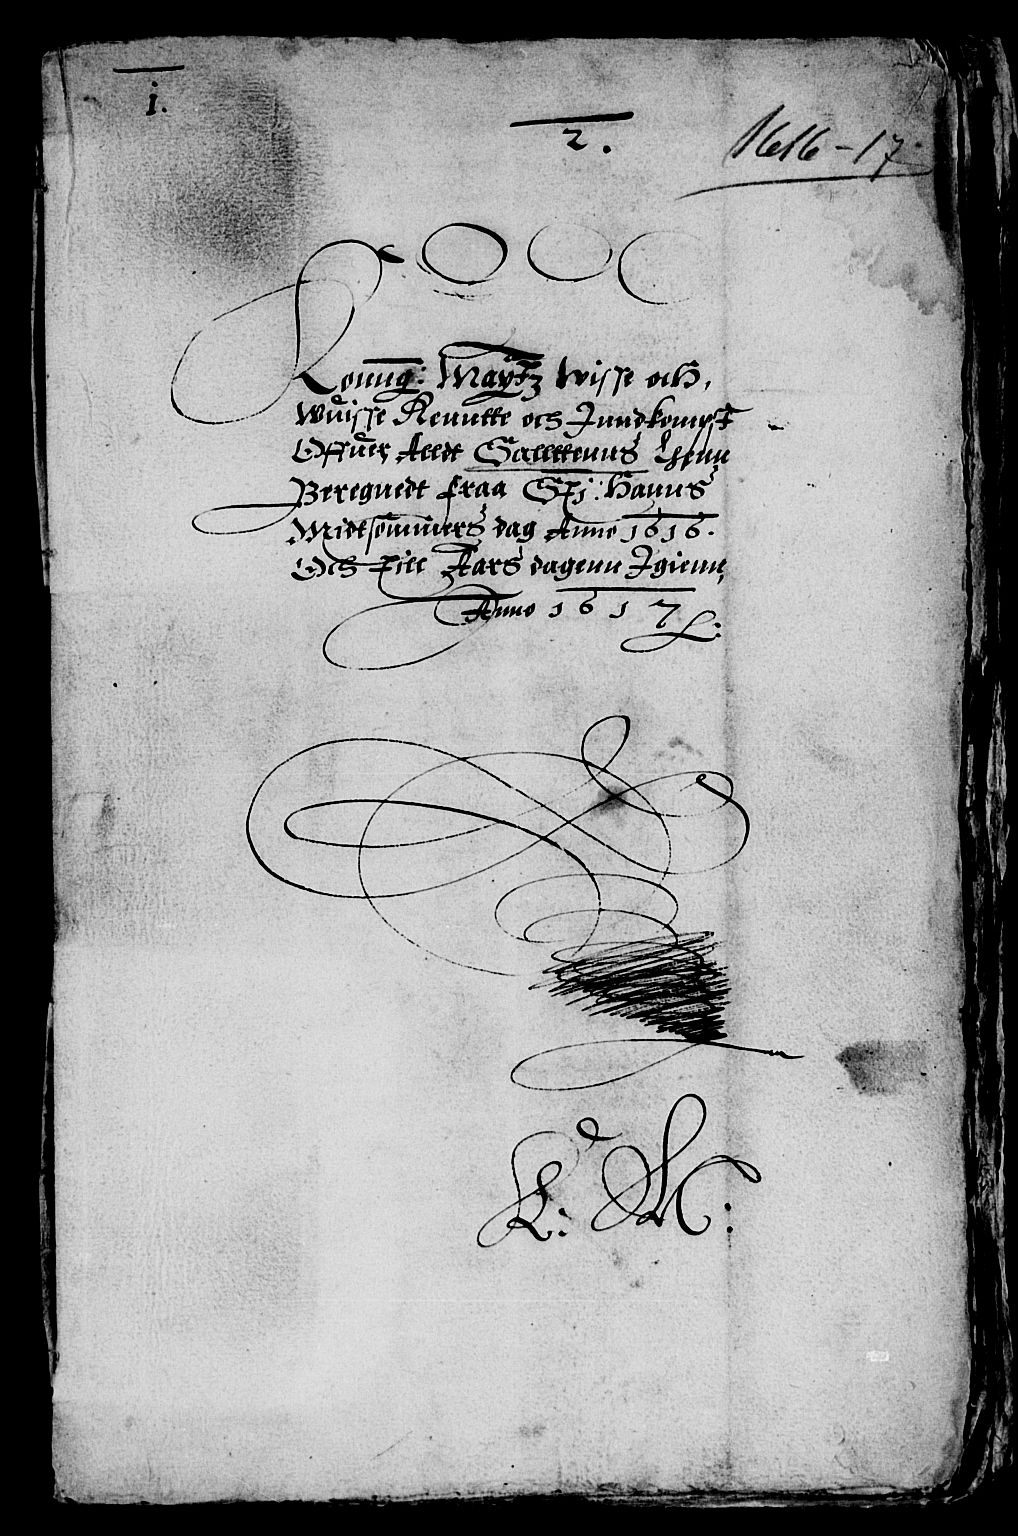 i.
2.
1616-17.
Konng: Maÿtz Wisse och,
Wuisse Renntte och Inndkompst
Offuer Alldt Salttenns Lhenn
Beregnedt fraa Stj: Hanns
Midtsommers dag Anno 1616.
Och till Aars dagenn Igienn,
Anno 1617
K: M: